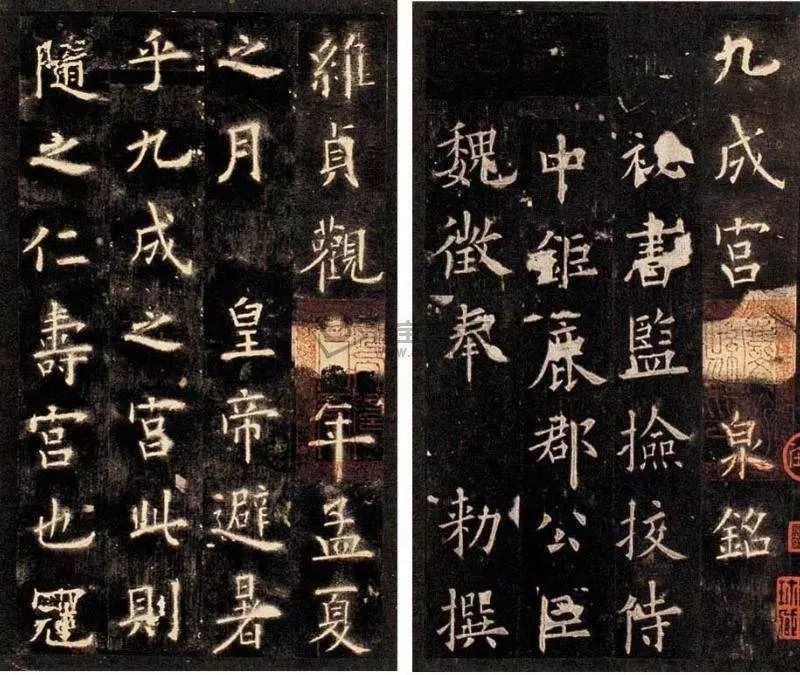 九成宫 泉銘
祕書監撿挍侍
中鉅鹿郡公臣
魏徵奉 勑撰
維貞觀 年孟夏
之月 皇帝避暑
乎九成之宫此則
隨之仁壽宫也冠